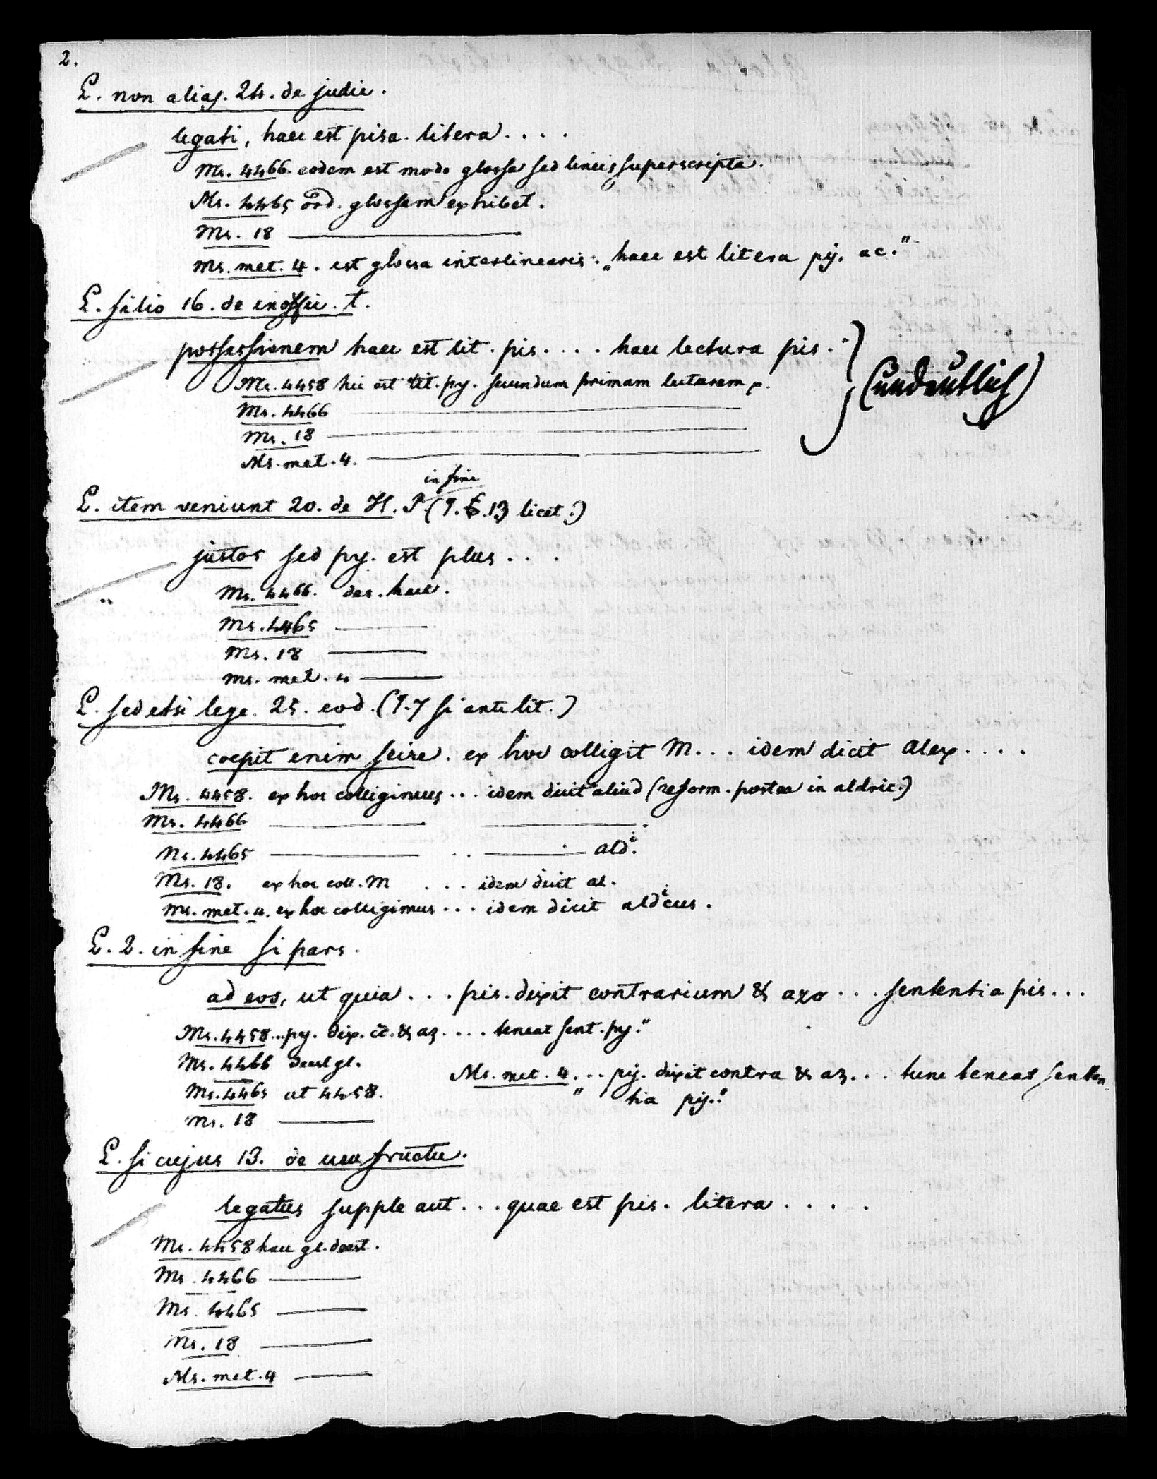 2.
L. non alias. 24. de judic.
legati, haec est pisa. litera . . . .
Ms. 4466. eodem est modo glossa sed lineis superscripta.
Ms. 4465 ord. glossam exhibet.
Ms. 18 ————
Ms. met. 4. est glossa interlinearis: „haec est litera py. ac."
L. filio 16. de inoffic. t.
possessionem haec est lit. pis. . . . haec lectura pis.
(undeutlich)
Ms. 4458 hic est lit. py. secundum primam lecturam
Ms. 4466 ————
Ms. 18 ————
Ms. met. 4. ————
in fine
L. item veniunt 20. de H. P. (§. 13 licet.)
justos sed py. est plus . . . .
Ms. 4466. des. haec.
Ms. 4465 ————
Ms. 18 ————
Ms. met. 4 ————
L. sed etsi lege. 25. eod. (§. 7 si ante lit.)
coepit enim scire. ex hoc colligit M. . . idem dicit Alex . . . .
Ms. 4458. ex hoc colligimus . . . idem dicit aliud (reform. postea in aldric.)
Ms. 4466 ———— ————
Ms. 4465 ———— . . ———— ald.
Ms. 18. ex hoc coll. M . . . idem dicit al.
Ms. met. 4. ex hoc colligimus . . . idem dicit aldicus.
L. 2. in fine si pars.
ad eos, ut quia . . . pis. dixit contrarium & azo . . . sententia pis . . .
Ms. 4458 . . . py. dix. & az . . . . teneat sent. py."
Ms. 4466 deest gl.
Ms. met. 4. . . py. dixit contra & az. . . tunc teneas senten
Ms. 4465 ut 4458.
" tia py."
Ms. 18 ————
L. si cujus 13. de usufructu.
legatus supple aut . . . quae est pis. litera . . . . .
Ms. 4458 haec gl. deest.
Ms. 4466 ————
Ms. 4465 ————
Ms. 18 ————
Ms. met. 4 ————